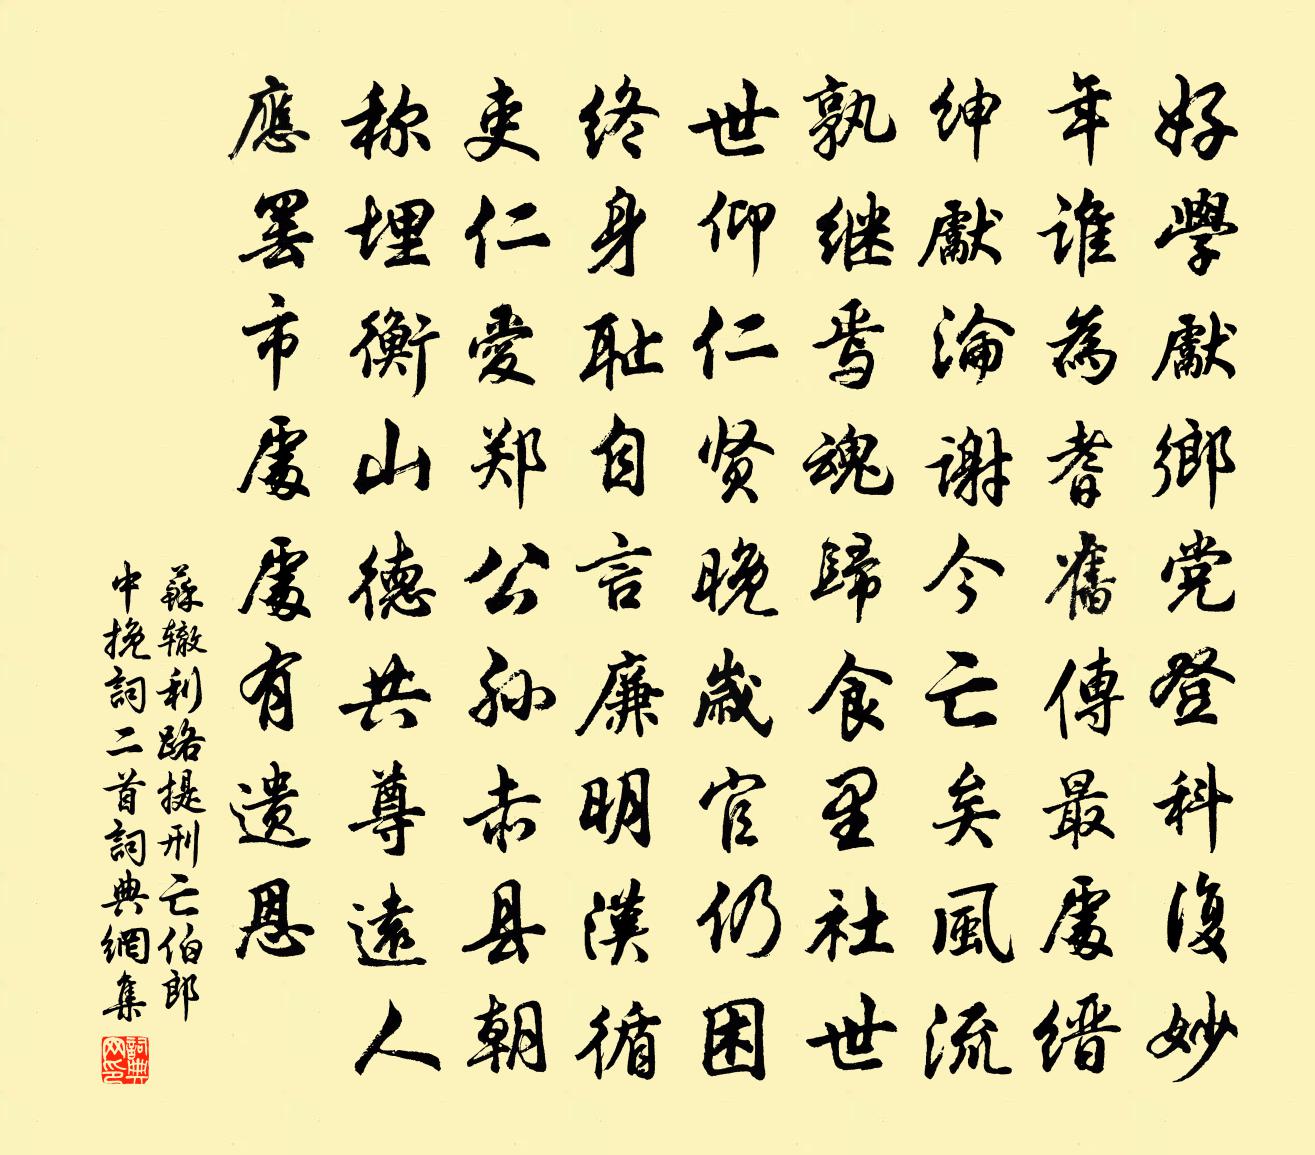 好學獻鄉党登科復妙
年誰為耆舊傳最處缙
绅獻淪謝今亡矣風流
孰继焉魂歸食里社世
世仰仁贤晚歲官仍困
终身耻自言廉明漢循
吏仁愛郑公孙赤县朝
称埋衡山德共尊遠人
應罢市處處有遺恩
蘇辙利路提刑亡伯郎
中挽詞二首詞典網集
詞典
网印